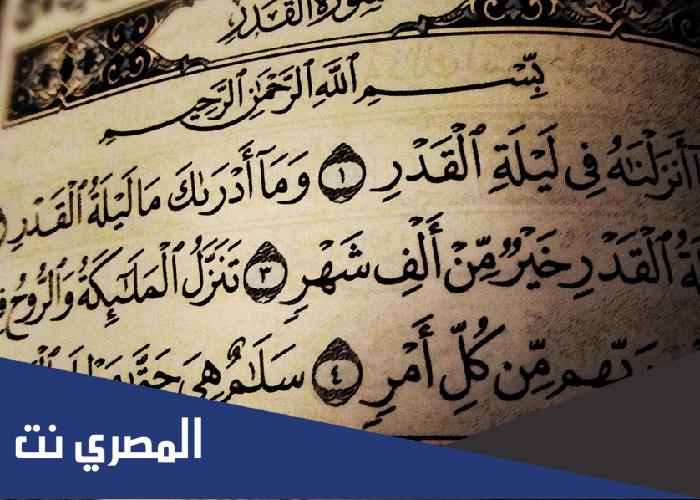 سُورَةُ ٱلْقَدْرِ
بِسْمِ ٱللَّهِ ٱلرَّحْمَٰنِ ٱلرَّحِيمِ
أَنزَلْنَٰهُ فِى لَيْلَةِ ٱلْقَدْرِ ١ وَمَآ أَدْرَىٰكَ مَا لَيْلَةُ ٱلْقَدْرِ
ٱلْقَدْرِ خَيْرٌ مِّنْ أَلْفِ شَهْرٍ ٣ تَنَزَّلُ ٱلْمَلَٰٓئِكَةُ وَٱلرُّوحُ
رَبِّهِم مِّن كُلِّ أَمْرٍ ٤ سَلَٰمٌ هِىَ حَتَّىٰ
المصري نت